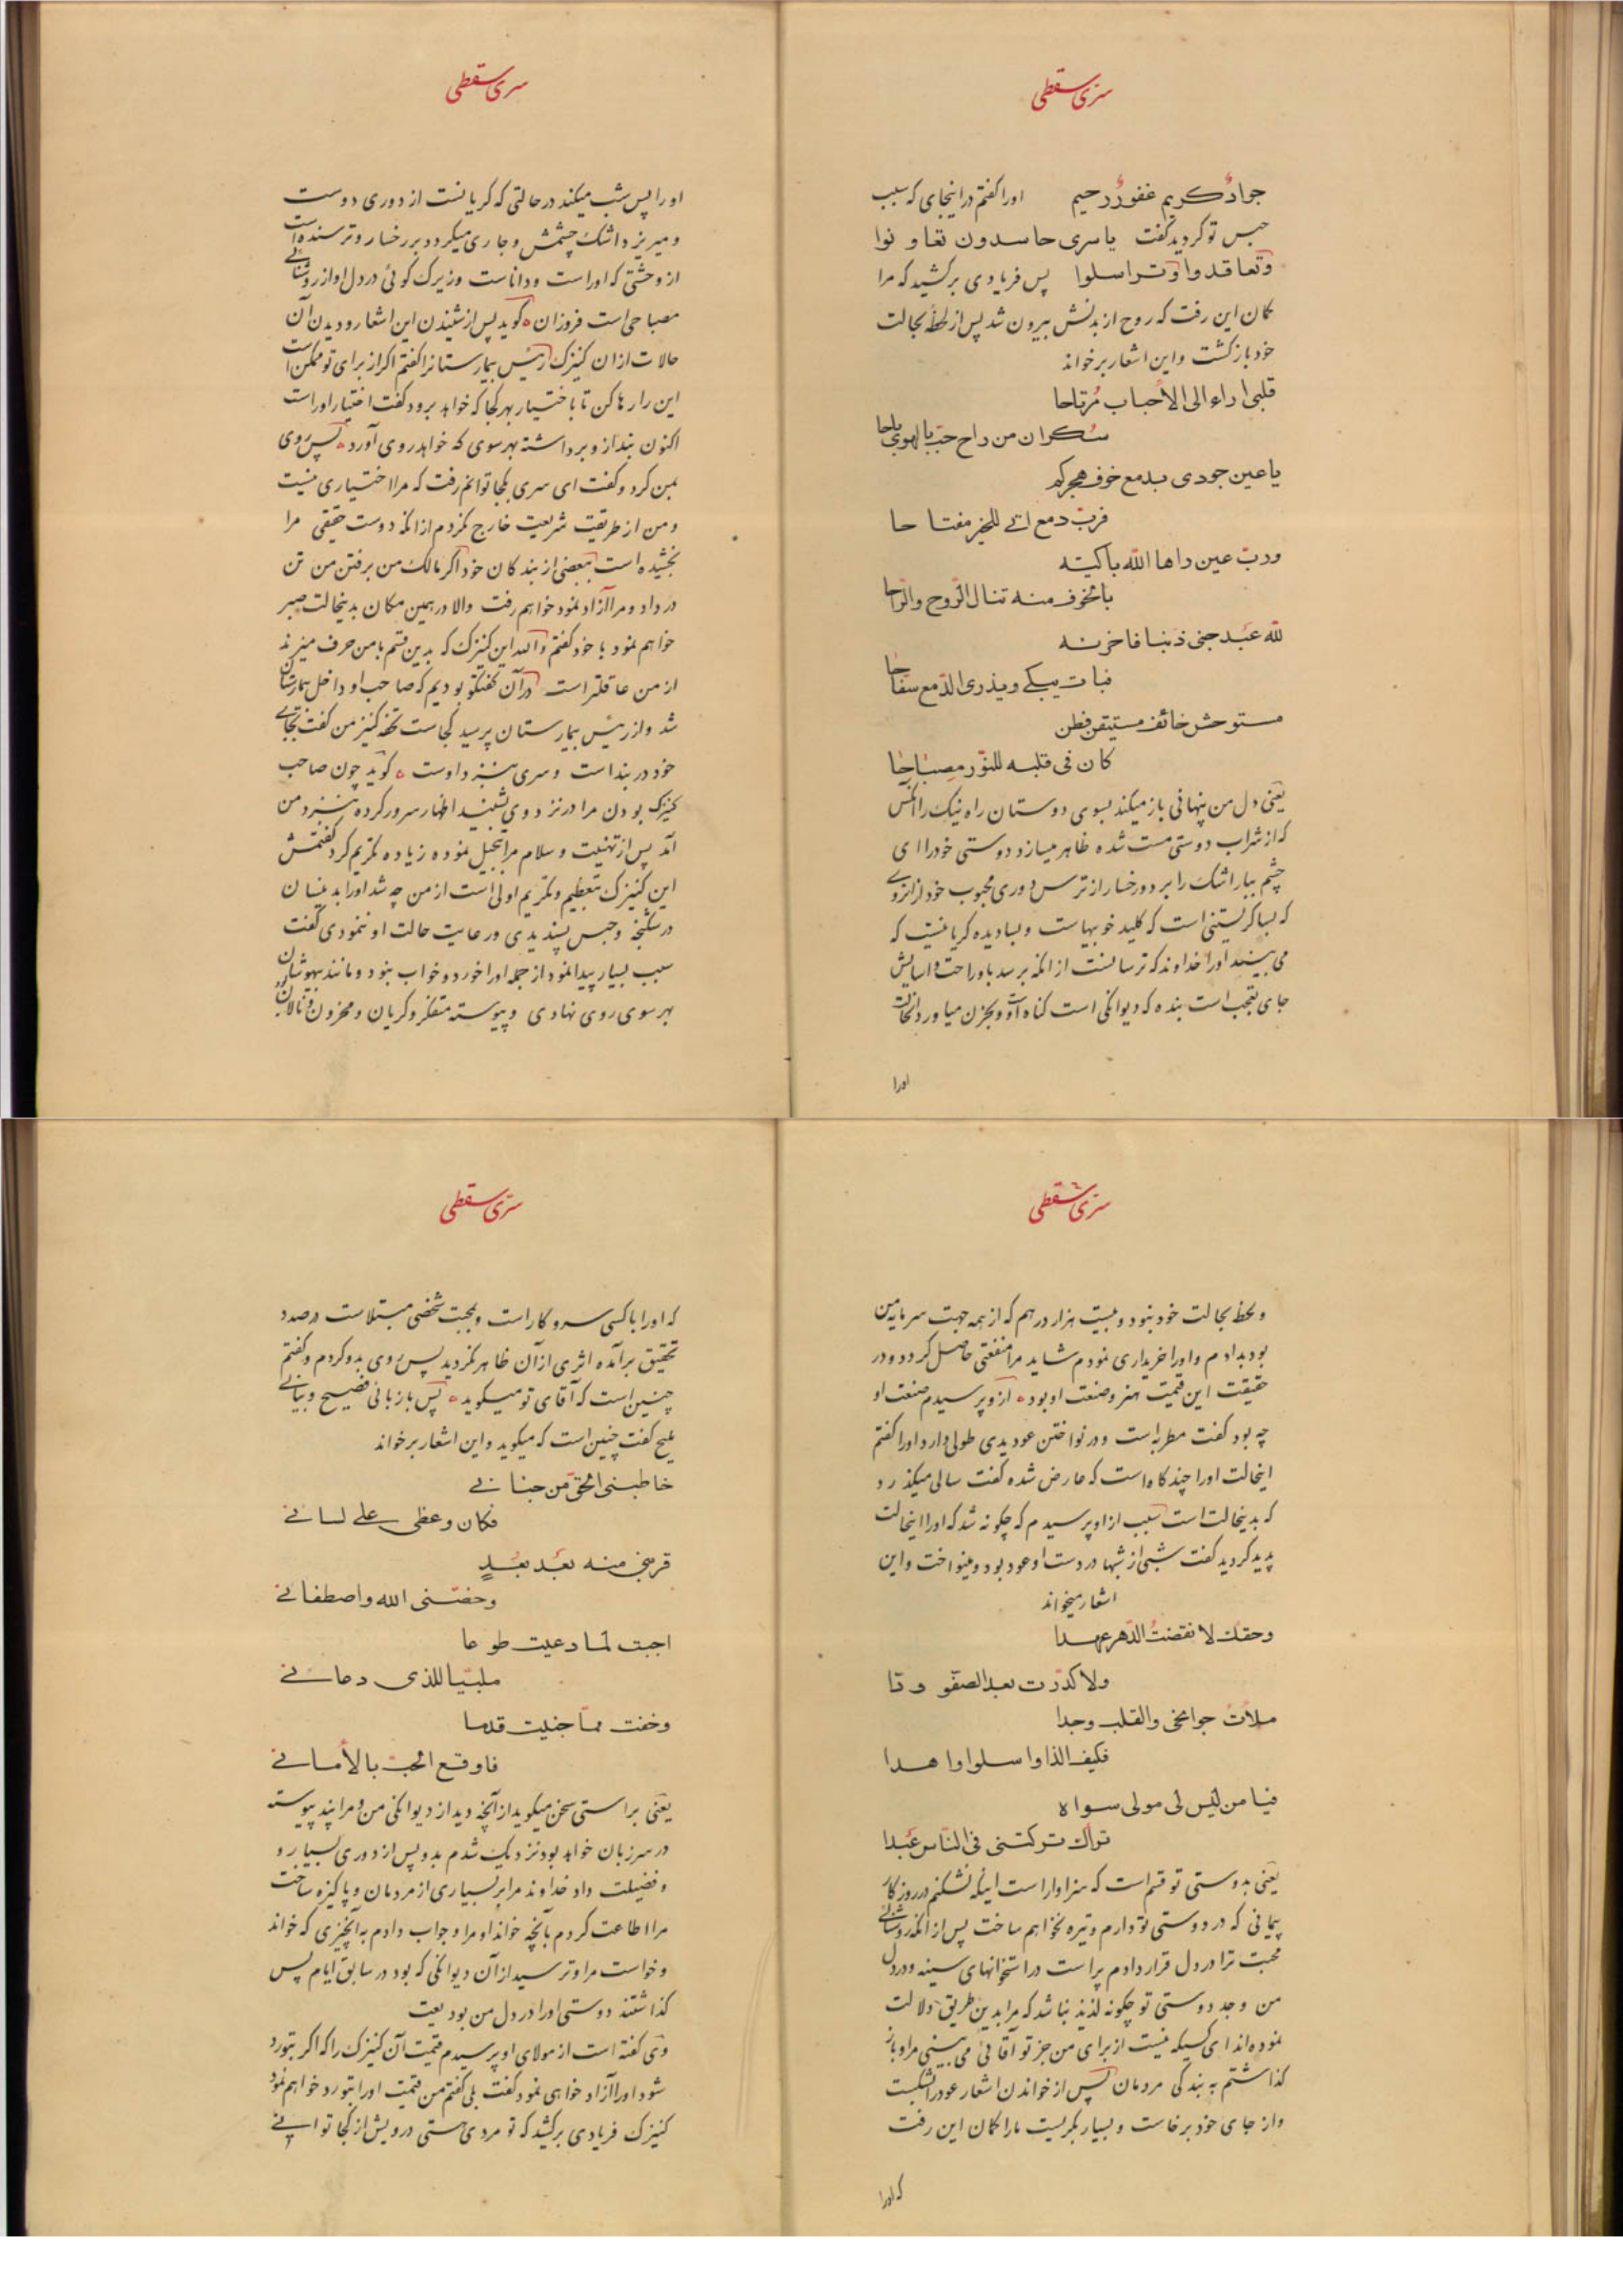 سری سقطی
جوادٌ کریم غفورٌ رحیم اورا کفتم در اینجای که سبب
حبس تو کردید کفت یا سری حاسدون تعاونوا
وتعاقدوا وتراسلوا پس فریادی برکشید که مرا
کمان این رفت که روح از بدنش بیرون شد پس از لحظهٔ بحالت
خود بازکشت واین اشعار برخواند
قلبی اراه الی الاحباب مُرتاحا
سکران من راح حبّ بالهوی باحا
یا عین جودی بدمع خوف هجرکم
فربّ دمع اتی للخیر مفتاحا
وربّ عین راها الله باکیته
بالخوف منه تنال الرّوح والرّاحا
لله عبد جنی ذنبا فاحزنه
فبات یبکی ویذری الدّمع سفّاحا
مستوحش خائف مستیقن فطن
کان فی قلبه للنّور مصباحا
یعنی دل من پنهانی باز میکند بسوی دوستان راه نیک را انکس
که از شراب دوستی مست شده ظاهر میسازد دوستی خود را ای
چشم ببار اشک را بر دو رخسار از ترس دوری محبوب خود از انروی
که بسا کریستنی است که کلید خوبیهاست وبسا دیده کریانیست که
می بیند اورا خداوند که ترسانست از انکه برسد باو راحت واسایش
جای تعجب است بنده که دیوانکی است کناه او وبحزن میاورد انحالت
اورا
سری سقطی
اورا پس شب میکند در حالتی که کریانست از دوری دوست
ومیریزد اشک چشمش وجاری میکردد بر رخسار وترسنده است
از وحشتی که اوراست وداناست وزیرک کوئی در دل او از روشنائی
مصباحی است فروزان کوید پس از شنیدن این اشعار ودیدن آن
حالات از ان کنیزک رئیس بیمارستانرا کفتم اکر از برای تو ممکن است
این را رها کن تا باختیار بهر کجا که خواهد برود کفت اختیار اوراست
اکنون بند از وبرداشته بهر سوی که خواهد روی آورد پس روی
بمن کرد وکفت ای سری بکجا توانم رفت که مرا اختیاری نیست
ومن از طریقت شریعت خارج نکردم از انکه دوست حقیقی مرا
بخشیده است ببعضی از بندکان خود اکر مالک من برفتن من تن
در داد ومرا آزاد نمود خواهم رفت والا در همین مکان بدینحالت صبر
خواهم نمود با خود کفتم والله این کنیزک که بدین قسم با من حرف میزند
از من عاقلتر است در آن کفتکو بودیم که صاحب او داخل بیمارستان
شد واز رئیس بیمارستان پرسید کجاست تحفه کنیز من کفت بجای
خود در بند است وسری بنزد اوست کوید چون صاحب
کنیزک بودن مرا در نزد وی شنید اظهار سرور کرده بنزد من
آمد پس از تهنیت وسلام مرا تبجیل نموده زیاده تکریم کرد کفتمش
این کنیزک بتعظیم وتکریم اولی است از من چه شد اورا بدینسان
در شکنجه وحبس پسندیدی ورعایت حالت او ننمودی کفت
سبب بسیار پیدا نمود از جمله اورا خورد وخواب بنود ومانند بیهوشان
بهر سوی روی نهادی وپیوسته متفکر وکریان ومحزون ونالان
سری سقطی
ولحظهٔ بحالت خود بنود وبیست هزار درهم که از همه جهت سرمایه من
بود بدادم واورا خریداری نمودم شاید مرا منفعتی حاصل کردد ودر
حقیقت این قیمت هنر وصنعت او بود از وپرسیدم صنعت او
چه بود کفت مطربه است ودر نواختن عود یدی طولی دارد اورا کفتم
اینحالت اورا چندکاه است که عارض شده کفت سالی میکذرد
که بدینحالت است سبب از او پرسیدم که چکونه شد که اورا اینحالت
پدید کردید کفت شبی از شبها در دست او عود بود ومینواخت واین
اشعار میخواند
وحقک لا نقضتُ الدّهر عهدا
ولا کدّرت بعد الصفو ودّا
ملأتُ جوانحی والقلب وجدا
فکیف الذا واسلوا واهدا
فیا من لیس لی مولی سواه
تراک ترکتنی فی النّاس عبدا
یعنی بدوستی تو قسم است که سزاوار است اینکه نشکنم در روزکار
پیمانی که در دوستی تو دارم وتیره نخواهم ساخت پس از انکه روشنائی
محبت ترا در دل قرار دادم پر است در استخوانهای سینه ودر دل
من وجد دوستی تو چکونه لذیذ نباشد که مرا بدین طریق دلالت
نموده اند ای کسیکه نیست از برای من جز تو آقائی می بینی مرا وباز
کذاشتم به بندکی مردمان پس از خواندن اشعار عود را شکست
واز جای خود برخاست وبسیار بکریست مارا کمان این رفت
که اورا
سری سقطی
که اورا با کسی سر وکار است وبمحبت شخصی مبتلاست در صدد
تحقیق برآمده اثری از آن ظاهر نکردید پس روی بدو کردم وکفتم
چنین است که آقای تو میکوید پس با زبانی فصیح وبیانی
ملیح کفت چنین است که میکوید واین اشعار برخواند
خاطبنی الحقّ من جنانی
فکان وعظی علی لسانی
قربنی منه بعد بُعدٍ
وخصّنی الله واصطفانی
اجبت لما دعیت طوعا
ملبّیا للذی دعانی
وخفت ممّا جنیت قدما
فاوقع الحبّ بالأمانی
یعنی براستی سخن میکوید از آنچه دید از دیوانکی من ومرا پند پیوسته
در سر زبان خواهد بود نزدیک شدم بدو پس از دوری بسیار و
وفضیلت داد خداوند مرا بر بسیاری از مردمان وپاکیزه ساخت
مرا اطاعت کردم بآنچه خواند او مرا وجواب دادم به آنچیزی که خواند
وخواست مرا وترسید از آن دیوانکی که بود در سابق ایام پس
کذاشتند دوستی اورا در دل من بودیعت
وی کفته است از مولای او پرسیدم قیمت آن کنیزک را که اکر بتو رد
شود اورا آزاد خواهی نمود کفت بلی کفتم من قیمت اورا بتو رد خواهم نمود
کنیزک فریادی برکشید که تو مردی هستی درویش از کجا توانی